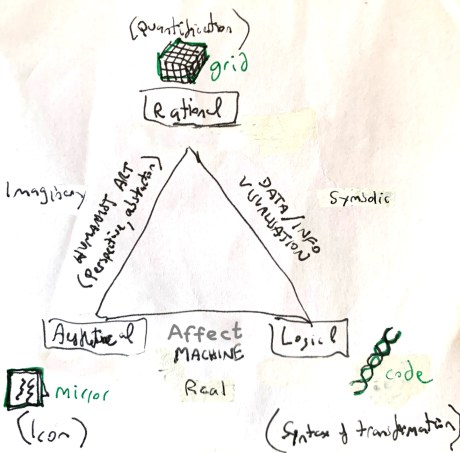 (Quantification)
grid
Rational
Imaginary
HUMANIST ART
(Perspective, abstraction)
DATA/INFO
VISUALISATION
Symbolic
Aesthetical
Affect
MACHINE
Logical
Real
mirror
code
(Icon)
(Syntax of transformation)